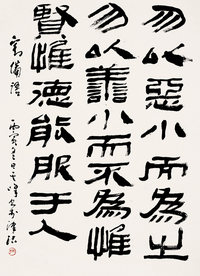 勿以惡小而為之
勿以善小而不為惟
賢惟德能服于人
劉備語